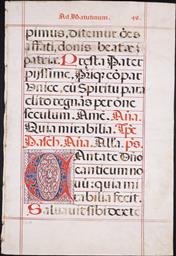 Ad Matutinum. 49.
pimus, Ditemur oēs
astati, donis beatae
patriæ. Præsta Pater
pijssime, Patriq; cōpar
Vnice, cū Spiritu para
clito regnas per om̄e
seculum. Amē. Aña.
Quia mirabilia. Tpe
Pasch. Aña. Alla. ps.
Cantate Dn̄o
canticum no
uū: quia mi
rabilia fecit.
Saluauit sibi dexte